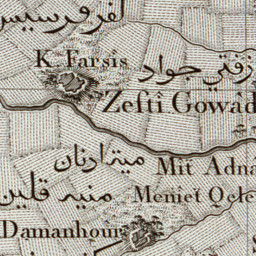 كفر فرسيس
K. Farsis
زفتي جواد
Zefti Gowad
ميت ادنان
Mit Adna
منية قلين
Meniet Qele
Damanhour